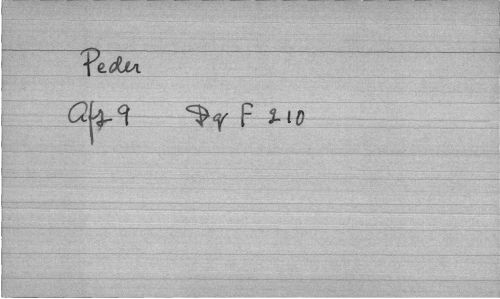 Peder
Afz 9 Dq F 210